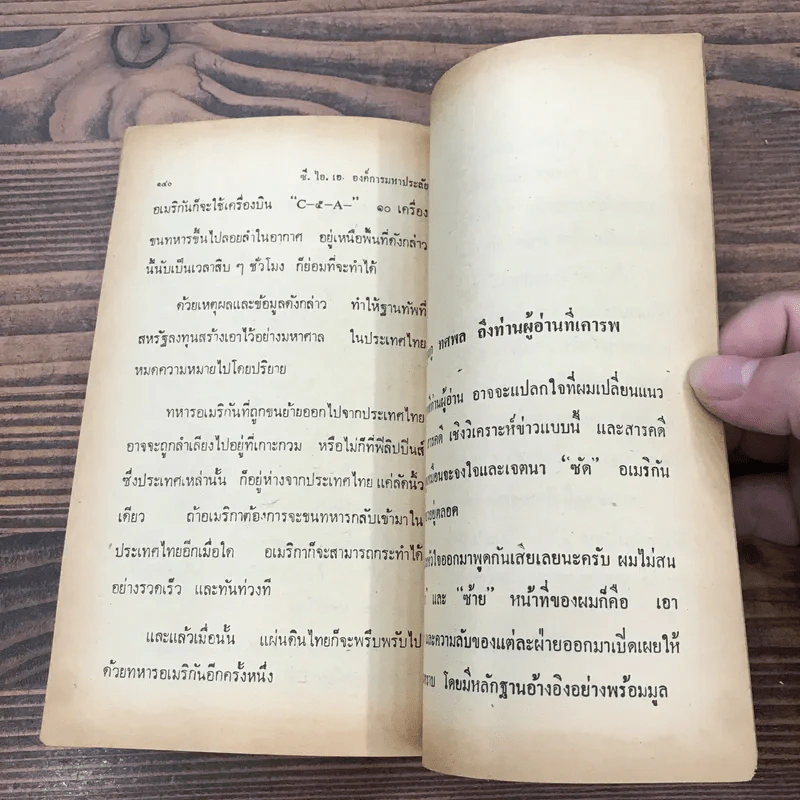 ๑๔๐ ซี. ไอ. เอ. องค์การมหาประลัย
อเมริกันก็จะใช้เครื่องบิน “C–๕–A–” ๑๐ เครื่อง
ขนทหารขึ้นไปลอยลำในอากาศ อยู่เหนือพื้นที่ดังกล่าว
นี้นับเป็นเวลาสิบ ๆ ชั่วโมง ก็ย่อมที่จะทำได้
ด้วยเหตุผลและข้อมูลดังกล่าว ทำให้ฐานทัพที่
สหรัฐลงทุนสร้างเอาไว้อย่างมหาศาล ในประเทศไทย
หมดความหมายไปโดยปริยาย
ทหารอเมริกันที่ถูกขนย้ายออกไปจากประเทศไทย
อาจจะถูกลำเลียงไปอยู่ที่เกาะกวม หรือไม่ก็ที่ฟิลิปปินส์
ซึ่งประเทศเหล่านั้น ก็อยู่ห่างจากประเทศไทย แค่ลัดนิ้ว
เดียว ถ้าอเมริกาต้องการจะขนทหารกลับเข้ามาใน
ประเทศไทยอีกเมื่อใด อเมริกาก็จะสามารถกระทำได้
อย่างรวดเร็ว และทันท่วงที
และแล้วเมื่อนั้น แผ่นดินไทยก็จะพรึบพรับไป
ด้วยทหารอเมริกันอีกครั้งหนึ่ง
ทศพล ถึงท่านผู้อ่านที่เคารพ
ท่านผู้อ่าน อาจจะแปลกใจที่ผมเปลี่ยนแนว
สารคดี เชิงวิเคราะห์ข่าวแบบนี้ และสารคดี
จะจงใจและเจตนา “ซัด” อเมริกัน
อยู่ตลอด
หัวใจออกมาพูดกันเสียเลยนะครับ ผมไม่สน
และ “ซ้าย” หน้าที่ของผมก็คือ เอา
และความลับของแต่ละฝ่ายออกมาเปิดเผยให้
โดยมีหลักฐานอ้างอิงอย่างพร้อมมูล